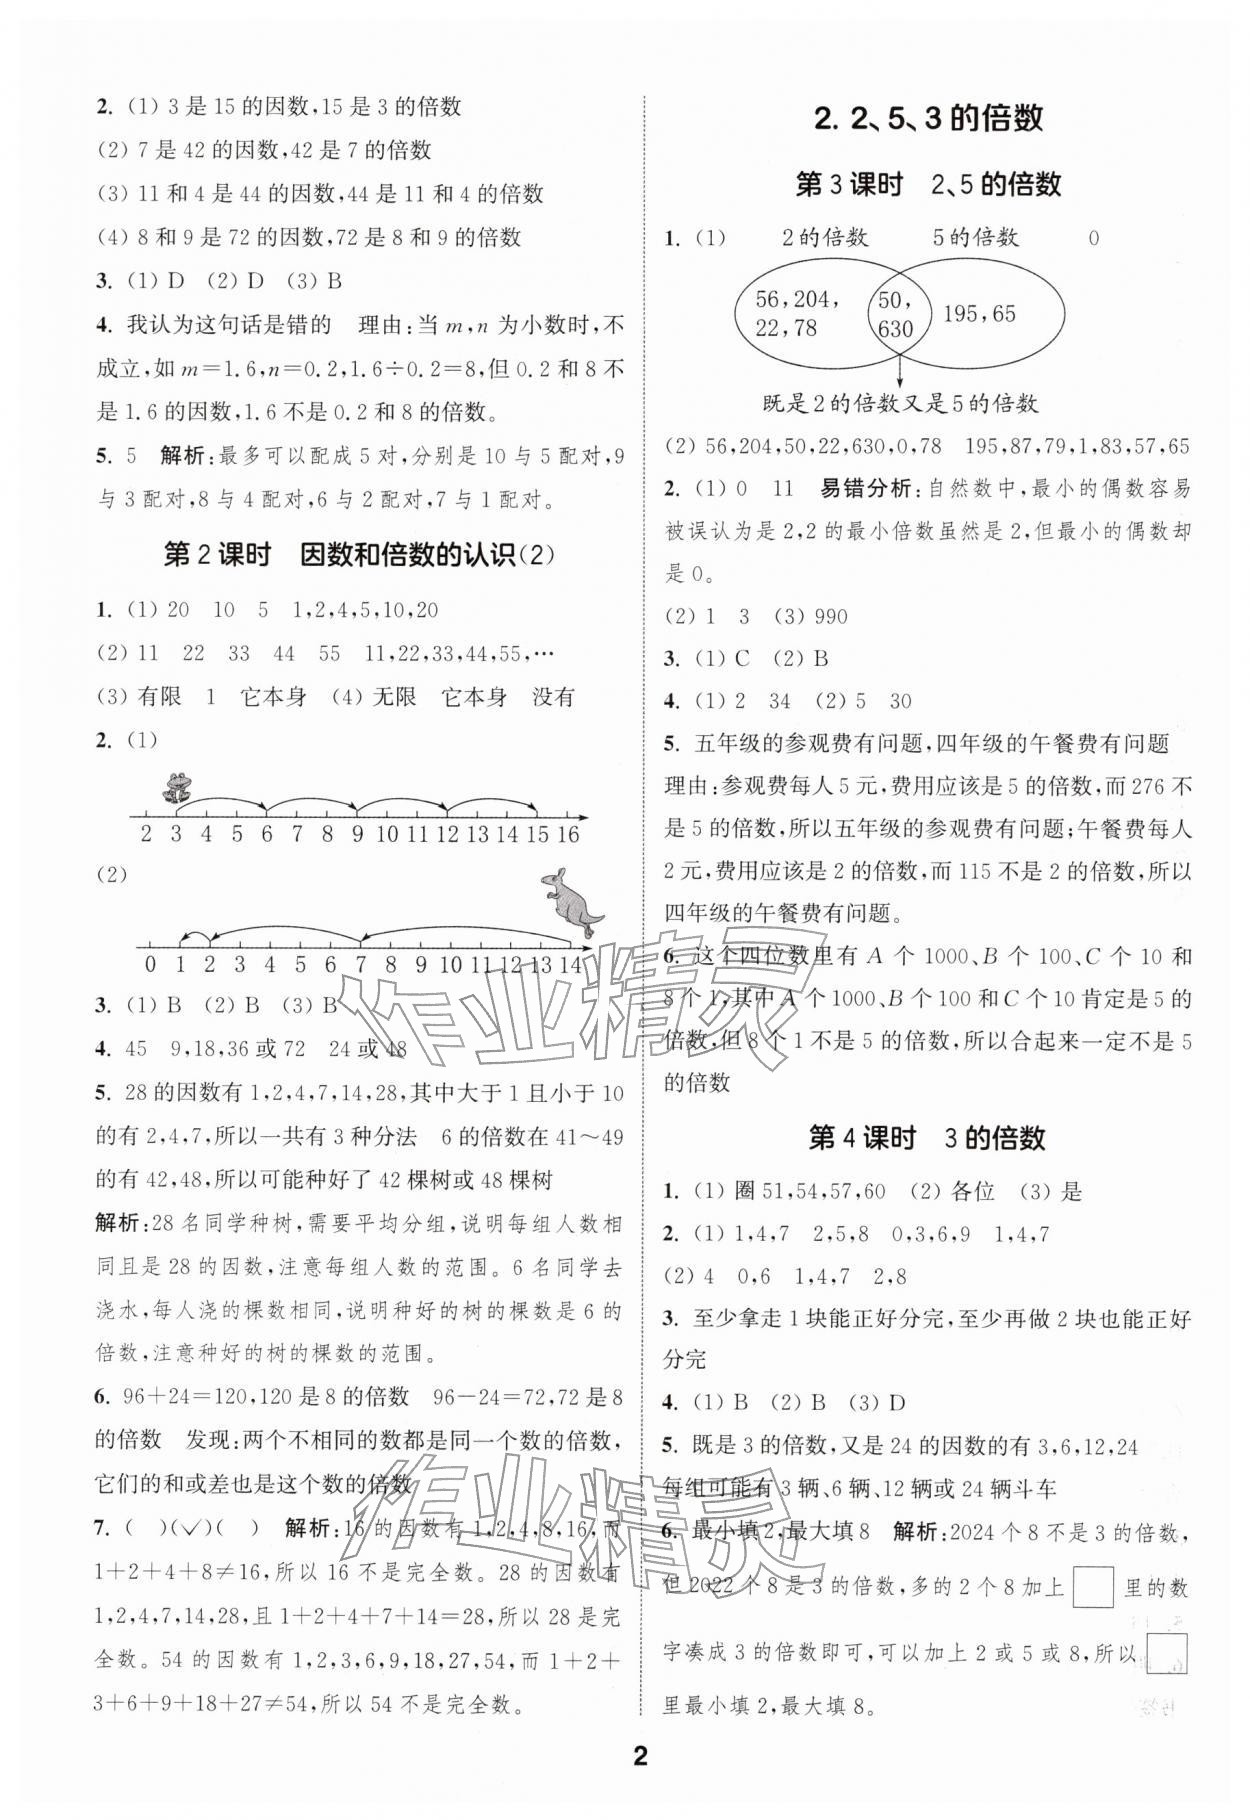 2. (1) 3 是 15 的因数,15 是 3 的倍数
(2) 7 是 42 的因数,42 是 7 的倍数
(3) 11 和 4 是 44 的因数,44 是 11 和 4 的倍数
(4) 8 和 9 是 72 的因数,72 是 8 和 9 的倍数
3. (1) D (2) D (3) B
4. 我认为这句话是错的 理由:当 m,n 为小数时,不
成立,如 m=1.6,n=0.2,1.6÷0.2=8,但 0.2 和 8 不
是 1.6 的因数,1.6 不是 0.2 和 8 的倍数。
5. 5 解析:最多可以配成 5 对,分别是 10 与 5 配对,9
与 3 配对,8 与 4 配对,6 与 2 配对,7 与 1 配对。
第 2 课时 因数和倍数的认识(2)
1. (1) 20 10 5 1,2,4,5,10,20
(2) 11 22 33 44 55 11,22,33,44,55,…
(3) 有限 1 它本身 (4) 无限 它本身 没有
2. (1)
2 3 4 5 6 7 8 9 10 11 12 13 14 15 16
(2)
0 1 2 3 4 5 6 7 8 9 10 11 12 13 14
3. (1) B (2) B (3) B
4. 45 9,18,36 或 72 24 或 48
5. 28 的因数有 1,2,4,7,14,28,其中大于 1 且小于 10
的有 2,4,7,所以一共有 3 种分法 6 的倍数在 41～49
的有 42,48,所以可能种好了 42 棵树或 48 棵树
解析:28 名同学种树,需要平均分组,说明每组人数相
同且是 28 的因数,注意每组人数的范围。6 名同学去
浇水,每人浇的棵数相同,说明种好的树的棵数是 6 的
倍数,注意种好的树的棵数的范围。
6. 96+24=120,120 是 8 的倍数 96-24=72,72 是 8
的倍数 发现:两个不相同的数都是同一个数的倍数,
它们的和或差也是这个数的倍数
7. ( )(√)( ) 解析:16 的因数有 1,2,4,8,16,而
1+2+4+8≠16,所以 16 不是完全数。28 的因数有
1,2,4,7,14,28,且 1+2+4+7+14=28,所以 28 是完
全数。54 的因数有 1,2,3,6,9,18,27,54,而 1+2+
3+6+9+18+27≠54,所以 54 不是完全数。
2. 2、5、3 的倍数
第 3 课时 2、5 的倍数
1. (1) 2 的倍数 5 的倍数 0
56,204, 50, 195,65
22,78 630
既是 2 的倍数又是 5 的倍数
(2) 56,204,50,22,630,0,78 195,87,79,1,83,57,65
2. (1) 0 11 易错分析:自然数中,最小的偶数容易
被误认为是 2,2 的最小倍数虽然是 2,但最小的偶数却
是 0。
(2) 1 3 (3) 990
3. (1) C (2) B
4. (1) 2 34 (2) 5 30
5. 五年级的参观费有问题,四年级的午餐费有问题
理由:参观费每人 5 元,费用应该是 5 的倍数,而 276 不
是 5 的倍数,所以五年级的参观费有问题;午餐费每人
2 元,费用应该是 2 的倍数,而 115 不是 2 的倍数,所以
四年级的午餐费有问题。
6. 这个四位数里有 A 个 1000、B 个 100、C 个 10 和
8 个 1,其中 A 个 1000、B 个 100 和 C 个 10 肯定是 5 的
倍数,但 8 个 1 不是 5 的倍数,所以合起来一定不是 5
的倍数
第 4 课时 3 的倍数
1. (1) 圈 51,54,57,60 (2) 各位 (3) 是
2. (1) 1,4,7 2,5,8 0,3,6,9 1,4,7
(2) 4 0,6 1,4,7 2,8
3. 至少拿走 1 块能正好分完,至少再做 2 块也能正好
分完
4. (1) B (2) B (3) D
5. 既是 3 的倍数,又是 24 的因数的有 3,6,12,24
每组可能有 3 辆、6 辆、12 辆或 24 辆斗车
6. 最小填 2,最大填 8 解析:2024 个 8 不是 3 的倍数,
但 2022 个 8 是 3 的倍数,多的 2 个 8 加上 □ 里的数
字凑成 3 的倍数即可,可以加上 2 或 5 或 8,所以 □
里最小填 2,最大填 8。
2
作业精灵
作业精灵